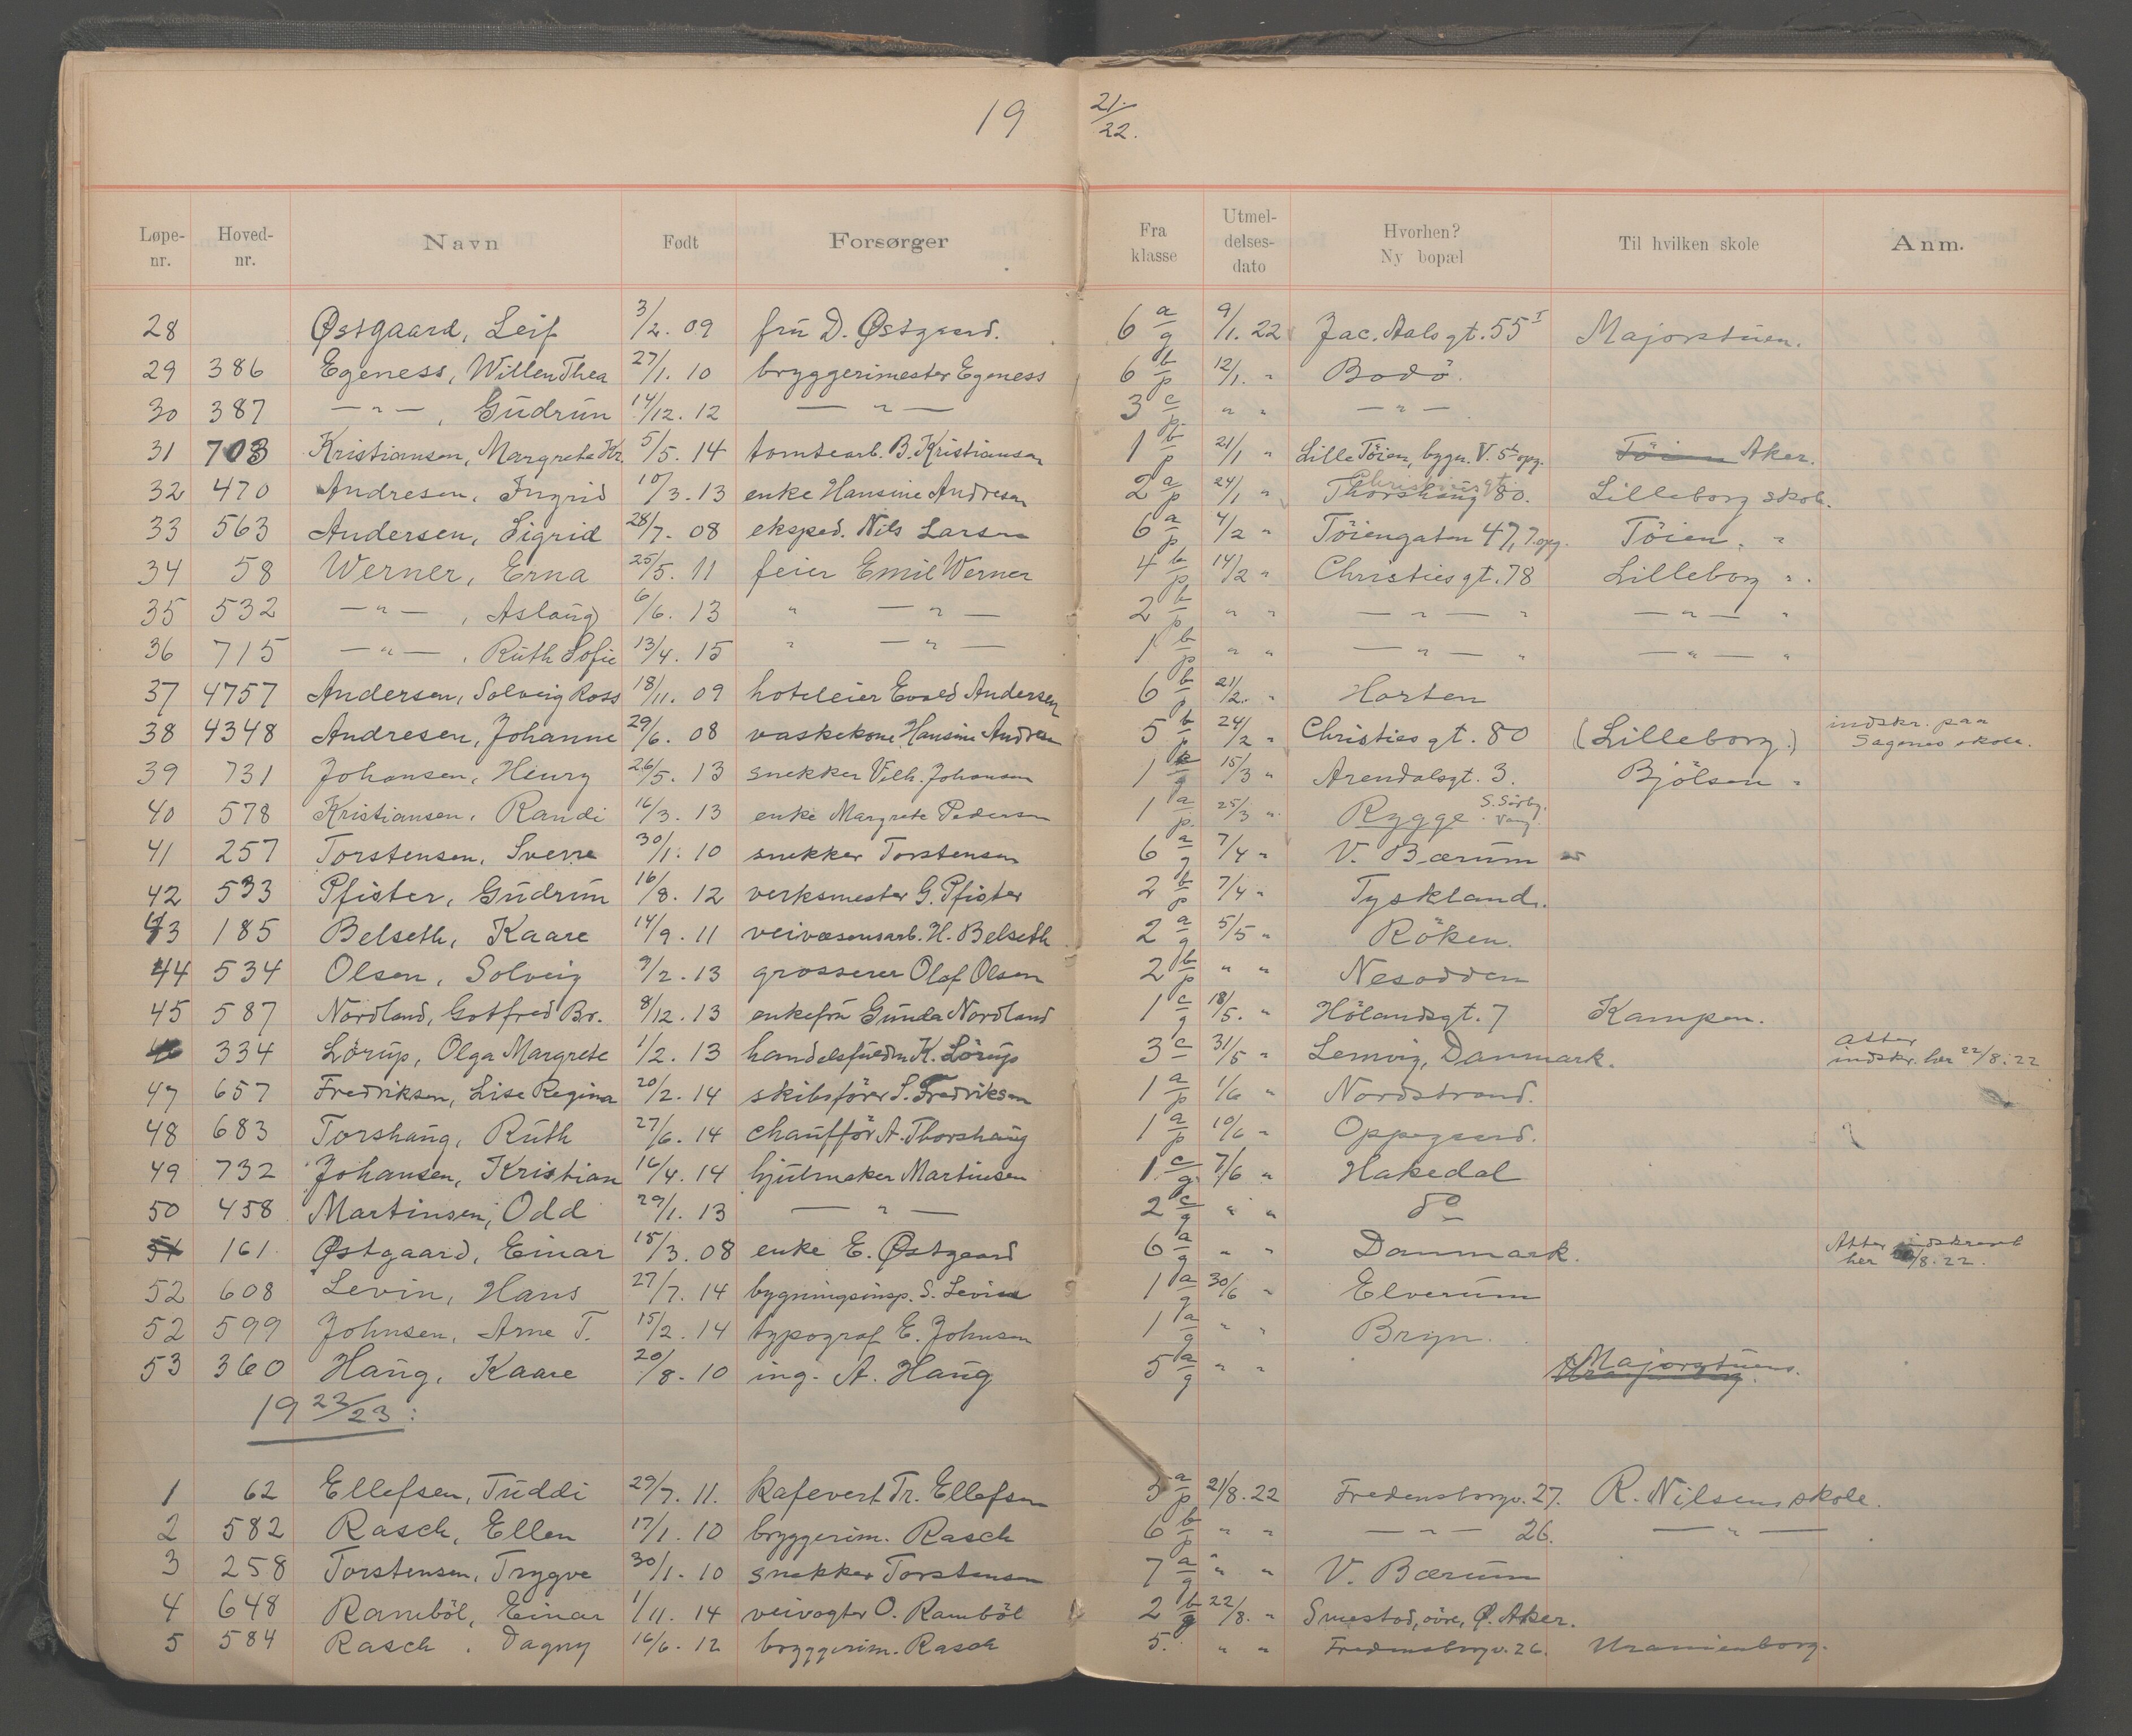 19 21/22.
Løpe-nr. Hoved-nr. Navn Født Forsørger Fra klasse Utmel-delses-dato Hvorhen? Ny bopæl Til hvilken skole Anm.
28 Østgaard, Leif 3/2. 09 fru D. Østgaard. 6 a/g 9/1. 22 Jac. Aalsgt. 55 I Majorstuen.
29 386 Egeness, Willen Thea 27/1. 10 bryggerimester Egeness 6 b/p 12/1. " Bodö.
30 387 — " — , Gudrun 14/12. 12 — " — 3 c/p " " — " —
31 703 Kristiansen, Margrete Kr. 5/5. 14 tomtearb. B. Kristiansen 1 b/p 21/1 " Lille Töien, bygn. V. 5te opg. Töien Aker.
32 470 Andresen, Ingrid 10/3. 13 enke Hansine Andresen 2 a/p 24/1 " Christiesgt. Thorshaug 80. Lilleborg skole.
33 563 Andersen, Sigrid 28/7. 08 eksped. Nils Larsen 6 a/p 4/2 " Töiengaten 47, 7. opg. Töien. "
34 58 Werner, Erna 25/5. 11 feier Emil Werner 4 b/p 14/2 " Christiesgt. 78 Lilleborg ".
35 532 — " — , Aslaug 6/6. 13 " — " — 2 b/p " " — " — " — " — "
36 715 — " — , Ruth Sofie 13/4. 15 " — " — 1 b/p " " — " — " — " — "
37 4757 Andersen, Solveig Ross 18/11. 09 hoteleier Evald Andersen 6 b/p 21/2. " Horten
38 4348 Andresen, Johanne 29/6. 08 vaskekone Hansine Andresen 5 b/p 24/2 " Christies gt. 80 (Lilleborg.) indskr. paa Sagenes skole.
39 731 Johansen, Henry 26/5. 13 snekker Vilh. Johansen 1 /g 15/3 " Arendalsgt. 3. Bjölsen "
40 578 Kristiansen, Randi 16/3. 13 enke Margrete Pedersen 1 a/p. 25/3 " Rygge S. Sörby. Vang.
41 257 Torstensen, Sverre 30/1. 10 snekker Torstensen 6 a/g 7/4 " V. Bærum
42 533 Pfister, Gudrun 16/8. 12 verksmester G. Pfister 2 b/p 7/4 " Tyskland.
43 185 Belseth, Kaare 14/9. 11 veivæsensarb. H. Belseth 2 a/g 5/5 " Röken.
44 534 Olsen, Solveig 9/2. 13 grosserer Olaf Olsen 2 b/p " " Nesodden
45 587 Nordland, Gotfred Br. 8/12. 13 enkefru Gunda Nordland 1 c/g 18/5. " Hölandsgt. 7 Kampen.
46 334 Lörup, Olga Margrete 1/2. 13 handelsfuldm K. Lörup 3 c 31/5 " Lemvig, Danmark. atter indskr. her 22/8. 22
47 657 Fredriksen, Lise Regina 20/2. 14 skibsförer S. Fredriksen 1 a/p 1/6 " Nordstrand.
48 683 Torshaug, Ruth 27/6. 14 chaufför A. Thorshaug 1 a/p 10/6 " Oppegaard.
49 732 Johansen, Kristian 16/4. 14 hjulmaker Martinsen 1 c/g. 7/6 " Hakedal
50 458 Martinsen, Odd 29/1. 13 — " — 2 c/g " " do
51 161. Østgaard, Einar 15/3. 08 enke E. Østgaard 6 a/g " " Danmark. Atter indskrevet her /8. 22.
52 608 Levin, Hans 27/7. 14 bygningsinsp. S. Levin 1 a/g 30/6 " Elverum
52 599 Johnsen, Arne T. 15/2. 14 typograf E. Johnsen 1 a/g " " Bryn.
53 360 Haug, Kaare 20/8. 10 ing. A. Haug 5 a/g " " Majorstuens.
19 22/23:
1 62 Ellefsen, Tuddi 29/7. 11. kafevert Tr. Ellefsen 5 a/p 21/8. 22 Fredensborgv. 27. R. Nilsens skole.
2 582 Rasch, Ellen 17/1. 10 bryggerim. Rasch 6 b/p " " — " — 26. — " —
3 258 Torstensen, Trygve 30/1. 10 snekker Torstensen 7 a/g " " V. Bærum
4 648 Ramböl, Einar 1/11. 14 veivogter O. Ramböl 2 b/g 22/8. " Smestad, övre, Ø. Aker.
5 584 Rasch, Dagny 16/6. 12 bryggerim. Rasch 5. " " Fredensborgv. 26. Uranienborg.